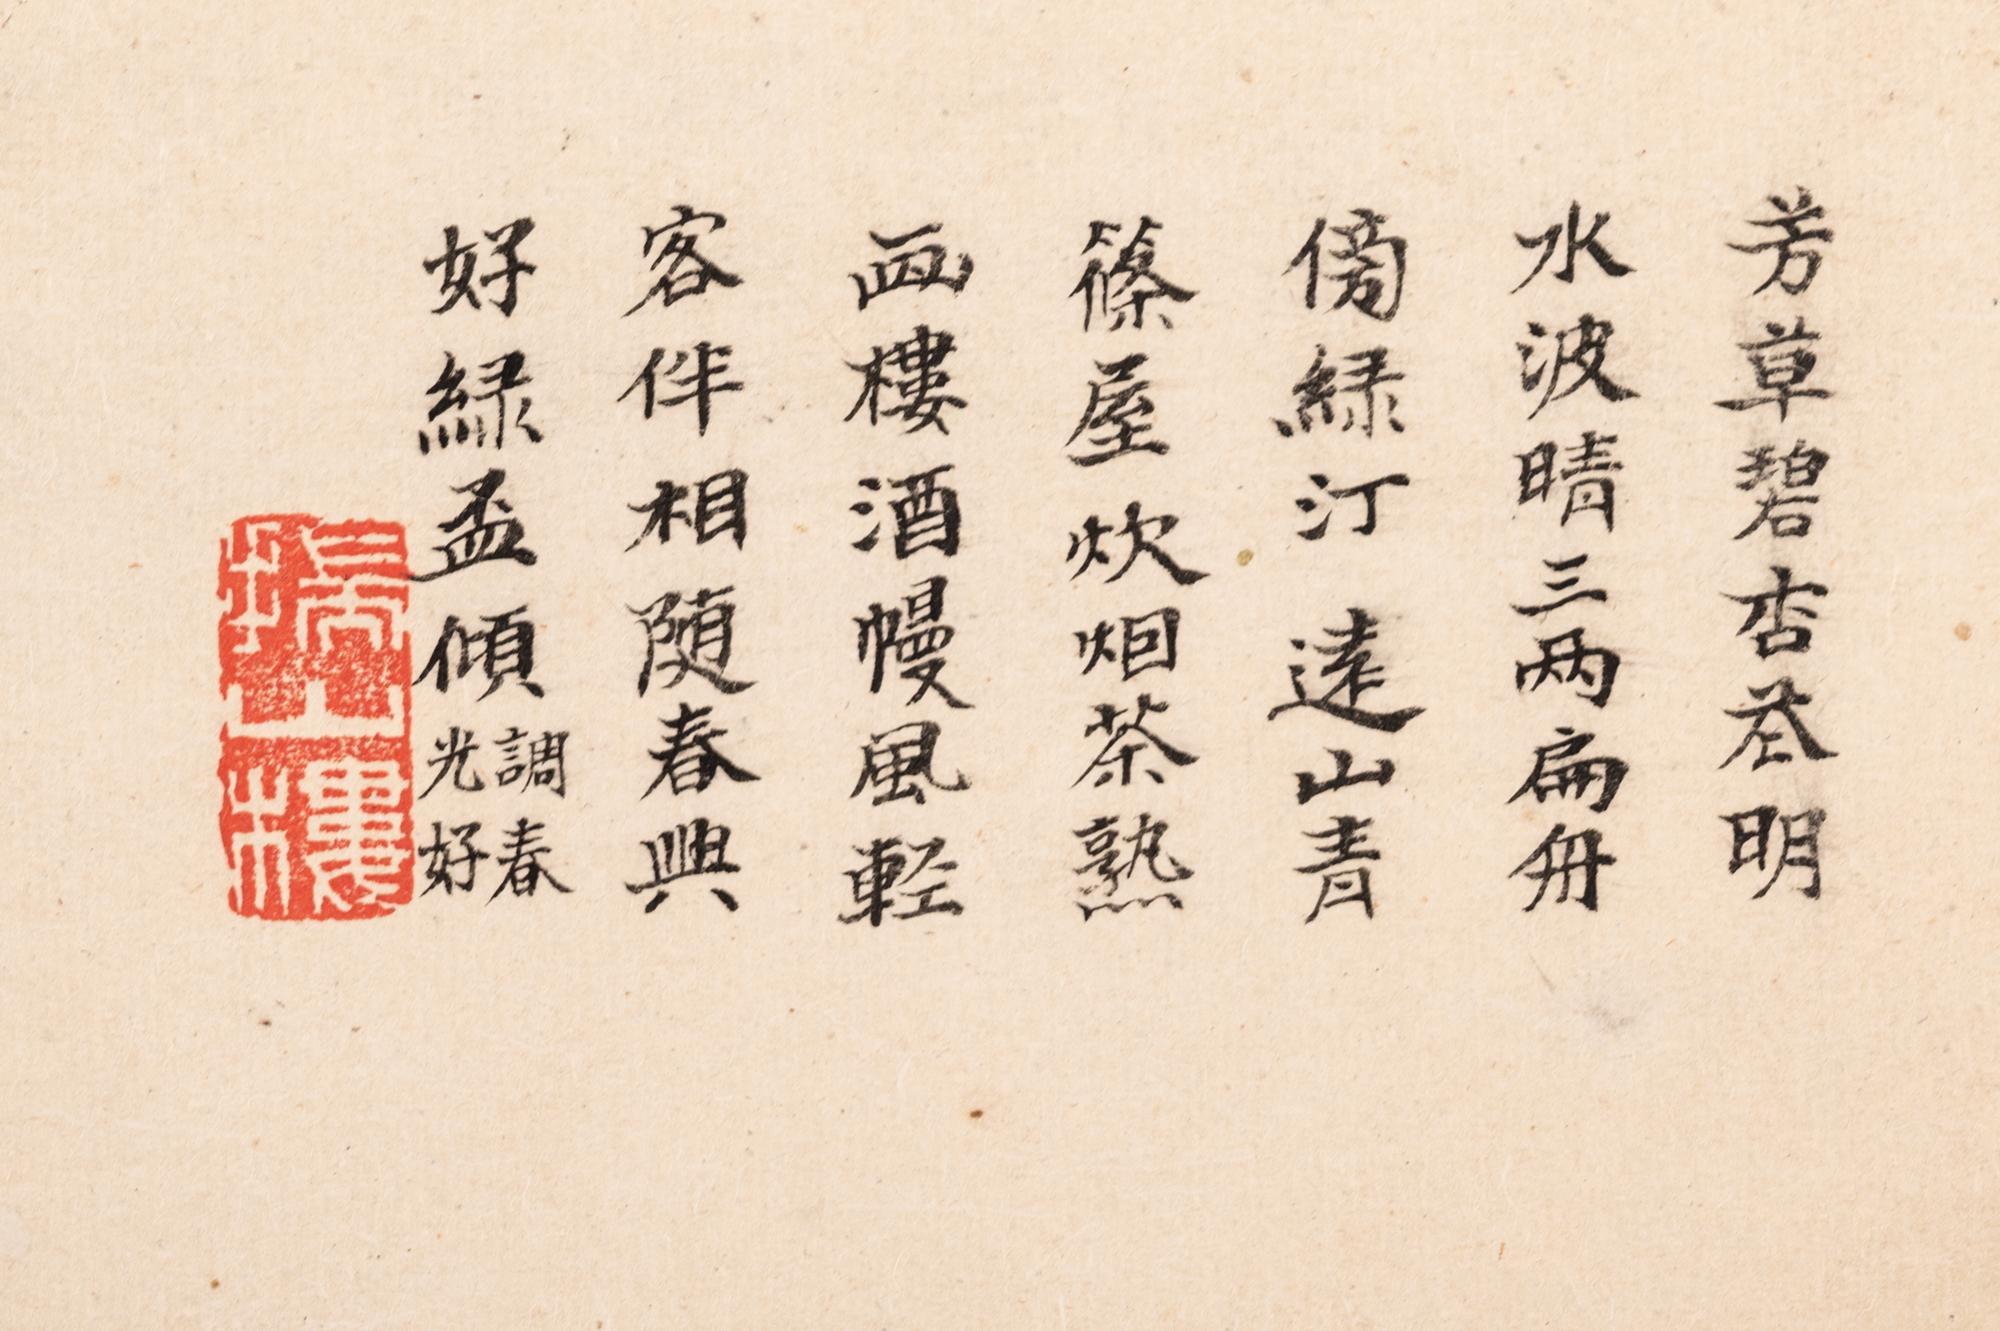 芳草碧杏花明
水波晴三两扁舟
傍緑汀遠山青
篠屋炊烟茶熟
画樓酒幔風軽
客伴相随春興
好緑盃傾調春光好